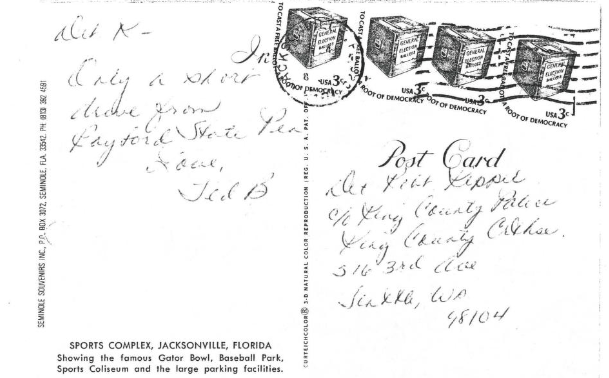 Det K -
Only a short
drive from
Rayford State Pen
Love,
Ted B
SEMINOLE SOUVENIRS INC., P.O. BOX 3072, SEMINOLE FLA. 33542. PH: (813) 392 4591
SPORTS COMPLEX, JACKSONVILLE, FLORIDA
Showing the famous Gator Bowl, Baseball Park,
Sports Coliseum and the large parking facilities.
CURTEICHCOLOR® 3-D NATURAL COLOR REPRODUCTION (REG. U. S. A. PAT. OFF.
TO CAST A FREE BALLOT A ROOT OF DEMOCRACY
GENERAL
ELECTION
BALLOT
USA 3c
GENERAL
ELECTION
BALLOT
USA 3c
GENERAL
ELECTION
BALLOT
USA 3c
GENERAL
ELECTION
BALLOT
USA 3c
Post Card
Det
c/o King County Police
King County Cthse.
516 3rd Ave
Seattle, WA
98104